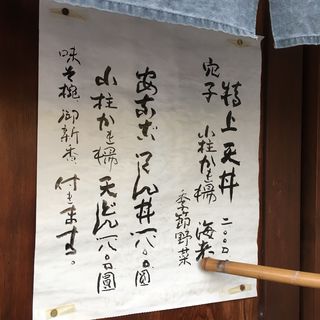 特上天丼 二、〇〇〇
穴子 小柱かき揚 海老
季節野菜
あなご天丼 一八〇〇圓
小柱かき揚天どん 一八〇〇圓
味そ椀 御新香 付きます。